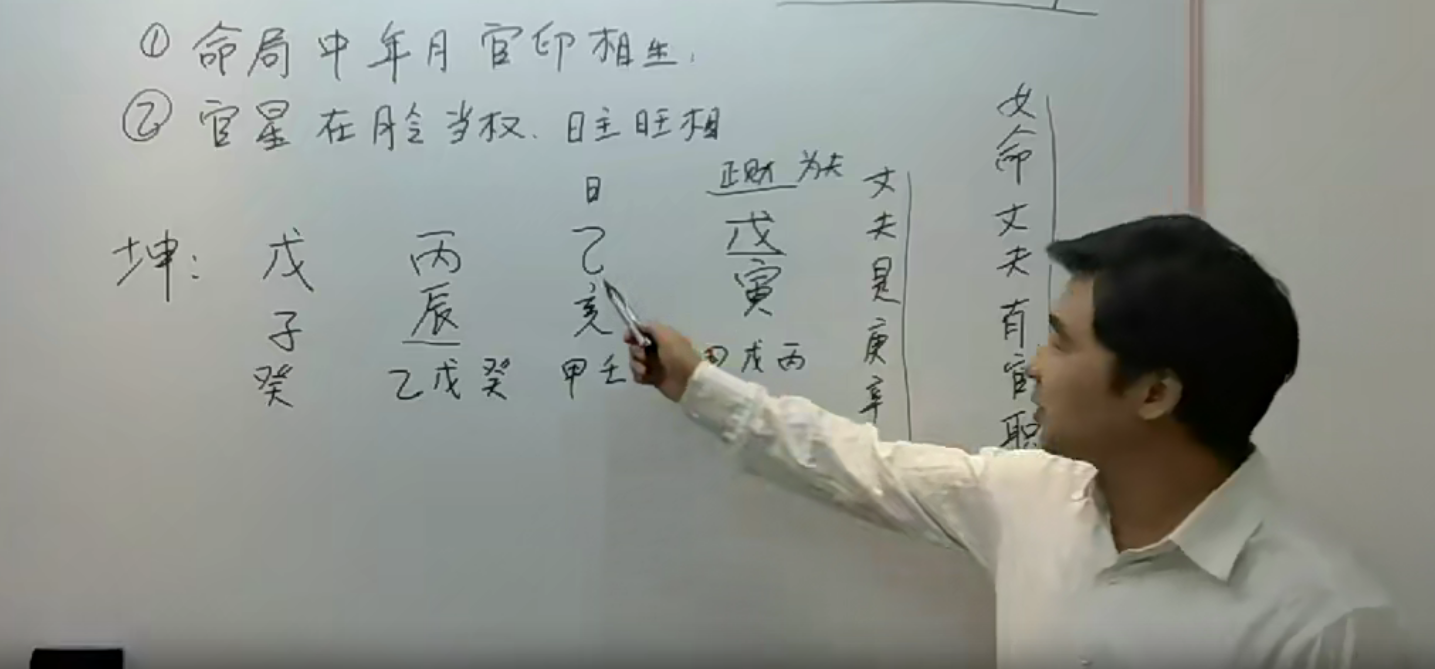 ① 命局中年月官印相生.
② 官星在脸当权. 日主旺相
女命丈夫有官职
丈夫是庚辛
正财 为夫
日
坤: 戊 丙 乙 戊
子 辰 亥 寅
癸 乙戊癸 甲壬 戊丙